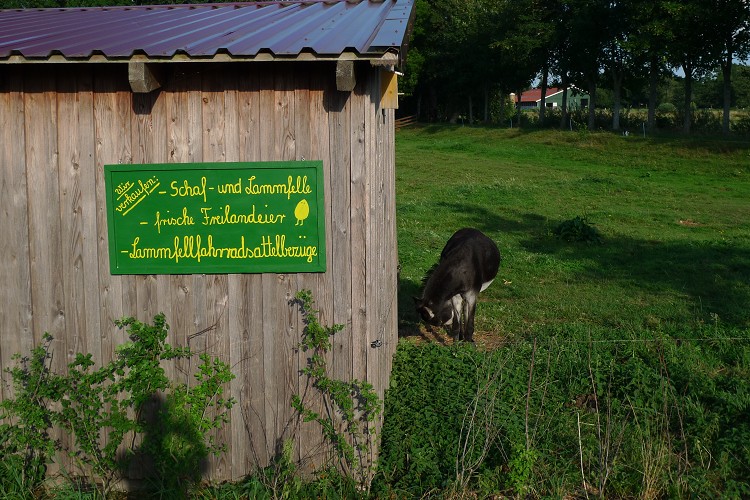 Wir verkaufen:
- Schaf- und Lammfelle
- frische Freilandeier
- Lammfellfahrradsattelbezüge